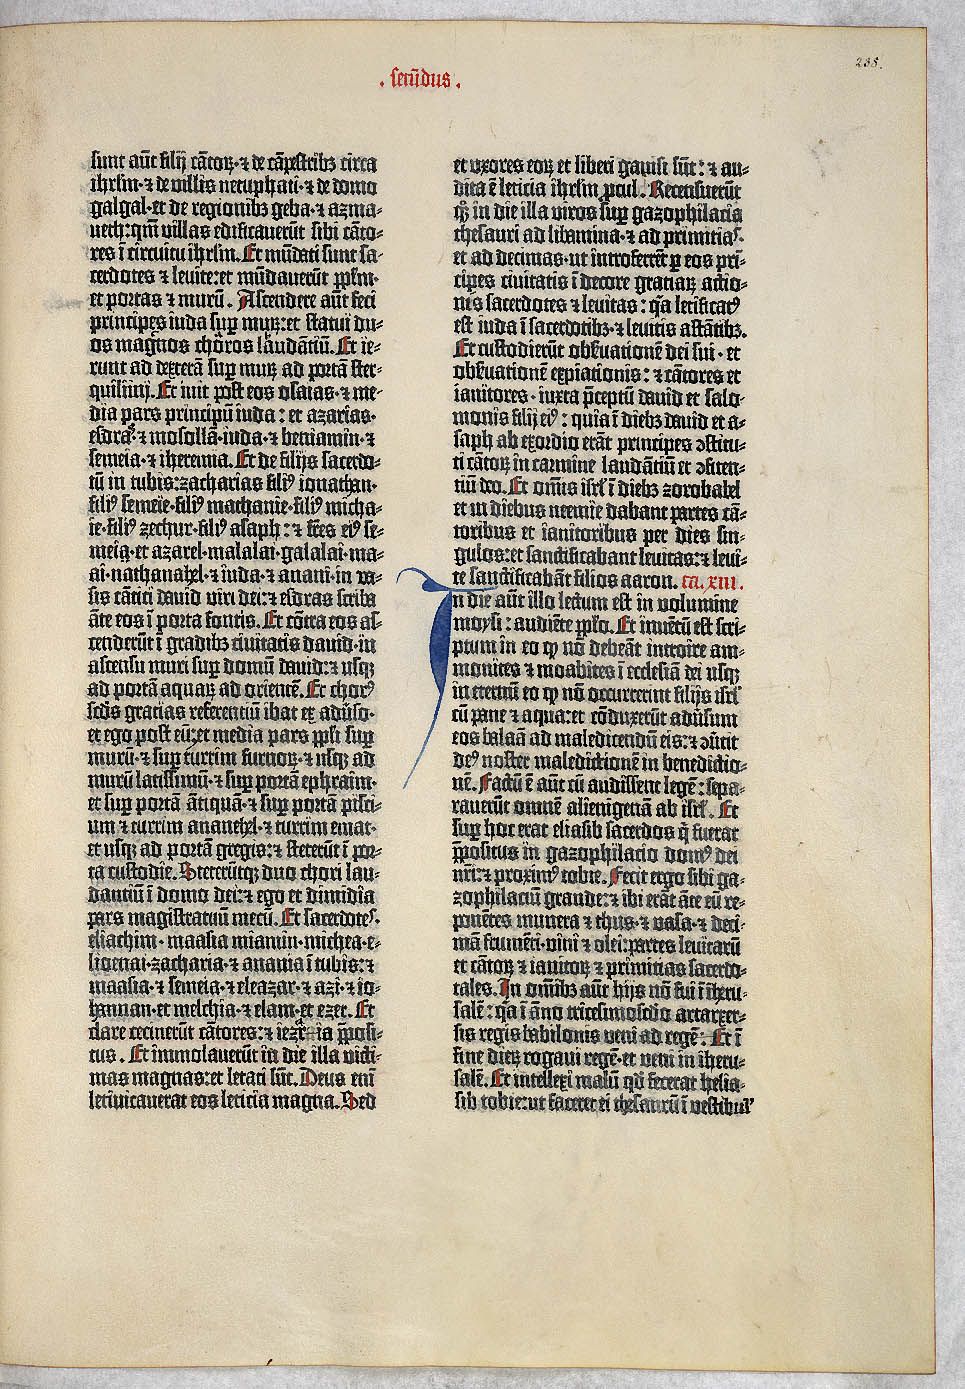 235.
. secũdus .
sunt aũt filij cãtoꝝ·⁊ de cãpestribꝫ circa
ihrlm·⁊ de villis netuphati·⁊ de domo
galgal·et de regionibꝫ geba·⁊ azma-
ueth:qm̃ villas edificauerũt sibi cãto-
res ĩ circuitu ihrlm. Et mũdati sunt sa-
cerdotes ⁊ leuite:et mũdauerũt ppl̃m·
et portas ⁊ murũ. Ascendere aũt feci
principes iuda sup muꝝ:et statui du-
os magnos choros laudãtiũ. Et ie-
runt ad dexterã sup muꝝ ad portã ster-
quilinij. Et iuit post eos osaias·⁊ me-
dia pars principũ iuda: et azarias·
esdra·⁊ mosollã·iuda·⁊ beniamin·⁊
semeia·⁊ iheremia. Et de filijs sacerdo-
tũ in tubis:zacharias filiꝰ ionathan·
filiꝰ semeie·filiꝰ mathanie·filiꝰ micha-
ie·filiꝰ zechur·filiꝰ asaph:⁊ fr̃es eiꝰ se-
meia·et azarel·malalai·galalai·ma-
ai·nathanahel·⁊ iuda·⁊ anani·in va-
sis cãtici dauid viri dei:⁊ esdras scriba
ãte eos ĩ porta fontis. Et cõtra eos as-
cenderũt ĩ gradibꝫ ciuitatis dauid·in
ascensu muri sup domũ dauid:⁊ usqꝫ
ad portã aquaꝝ ad orientẽ. Et chorꝰ
scd̃s gracias referentiũ ibat ex aduso·
et ego post eũ:et media pars ppl̃i sup
murũ·⁊ sup turrim furnoꝝ·⁊ usqꝫ ad
murũ latissimũ·⁊ sup portã ephraim·
et sup portã ãtiquã·⁊ sup portã pisci-
um ⁊ turrim ananehel·⁊ turrim emat·
et usqꝫ ad portã gregis:⁊ steterũt ĩ por-
ta custodie. Steterũtqꝫ duo chori lau-
dantiũ ĩ domo dei:⁊ ego et dimidia
pars magistratuũ mecũ. Et sacerdotes·
eliachim·maasia miamin·michea·e-
lioenai·zacharia·⁊ anania ĩ tubis:⁊
maasia·⁊ semeia·⁊ eleazar·⁊ azi·⁊ io-
hannan·et melchia·⁊ elam·et ezer. Et
clare cecinerũt cãtores:⁊ iezraia p̃posi-
tus. Et immolauerũt in die illa victi-
mas magnas:et letati sũt. Deus enĩ
letificauerat eos leticia magna. Sed
et vxores eoꝝ et liberi gauisi sũt: ⁊ au-
dita ẽ leticia ihrlm ꝓcul. Recensuerũt
qꝫ in die illa viros sup gazophilacia
thesauri ad libamina·⁊ ad primitias·
et ad decimas·ut introferrẽt ꝑ eos pri-
cipes ciuitatis ĩ decore gratiaꝝ actio-
nis sacerdotes ⁊ leuitas: qa letificatꝰ
est iuda ĩ sacerdotibꝫ·⁊ leuitis astãtibꝫ.
Et custodierũt obseruationẽ dei sui·et
obseruationẽ expiationis: ⁊ cãtores et
ianitores·iuxta p̃ceptũ dauid et salo-
monis filij eiꝰ: quia ĩ diebꝫ dauid et a-
saph ab exordio erãt principes ꝯstitu-
ti cãtoꝝ in carmine laudãtiũ et ꝯfiten-
tiũ deo. Et om̃is isrl̃ ĩ diebꝫ zorobabel
et in diebus neemie dabant partes cã-
toribus et ianitoribus per dies sin-
gulos:et sanctificabant leuitas:⁊ leui-
te sanctificabãt filios aaron. ca. xiii.
In die aũt illo lectum est in volumine
moysi: audiẽte ppl̃o. Et inuẽtũ est scri-
ptum in eo qꝙ nõ debeãt introire am-
monites ⁊ moabites ĩ ecclesiã dei usqꝫ
in eternũ eo qꝙ nõ occurrerint filijs isrl̃
cũ pane ⁊ aqua:et cõduxerũt aduersum
eos balaã ad maledicendũ eis:⁊ ꝯũtit
deꝰ noster maledictionẽ in benedictio-
nẽ. Factũ ẽ aũt cũ audissent legẽ: sepa-
rauerũt omnẽ alienigenã ab isrl̃. Et
sup hoc erat eliasib sacerdos q̃ fuerat
p̃positus in gazophilacio domꝰ dei
nr̃i:⁊ proximꝰ tobie. Fecit ergo sibi ga-
zophilaciũ grande:⁊ ibi erãt ãte eũ re-
ponẽtes munera ⁊ thus·⁊ vasa·⁊ deci-
mã frumẽti·vini ⁊ olei:partes leuitarũ
et cãtoꝝ ⁊ ianitoꝝ ⁊ primitias sacerdo-
tales. In om̃ibꝫ aũt hijs nõ fui ĩ iheru-
salẽ: qa ĩ ãno tricesimoscd̃o artaxer-
sis regis babilonis veni ad regẽ: Et ĩ
fine dieꝝ rogaui regẽ·et veni in iheru-
salẽ. Et intellexi malũ qd̃ fecerat helia-
sib tobie:ut faceret ei thesaurũ ĩ vestibulꝭ